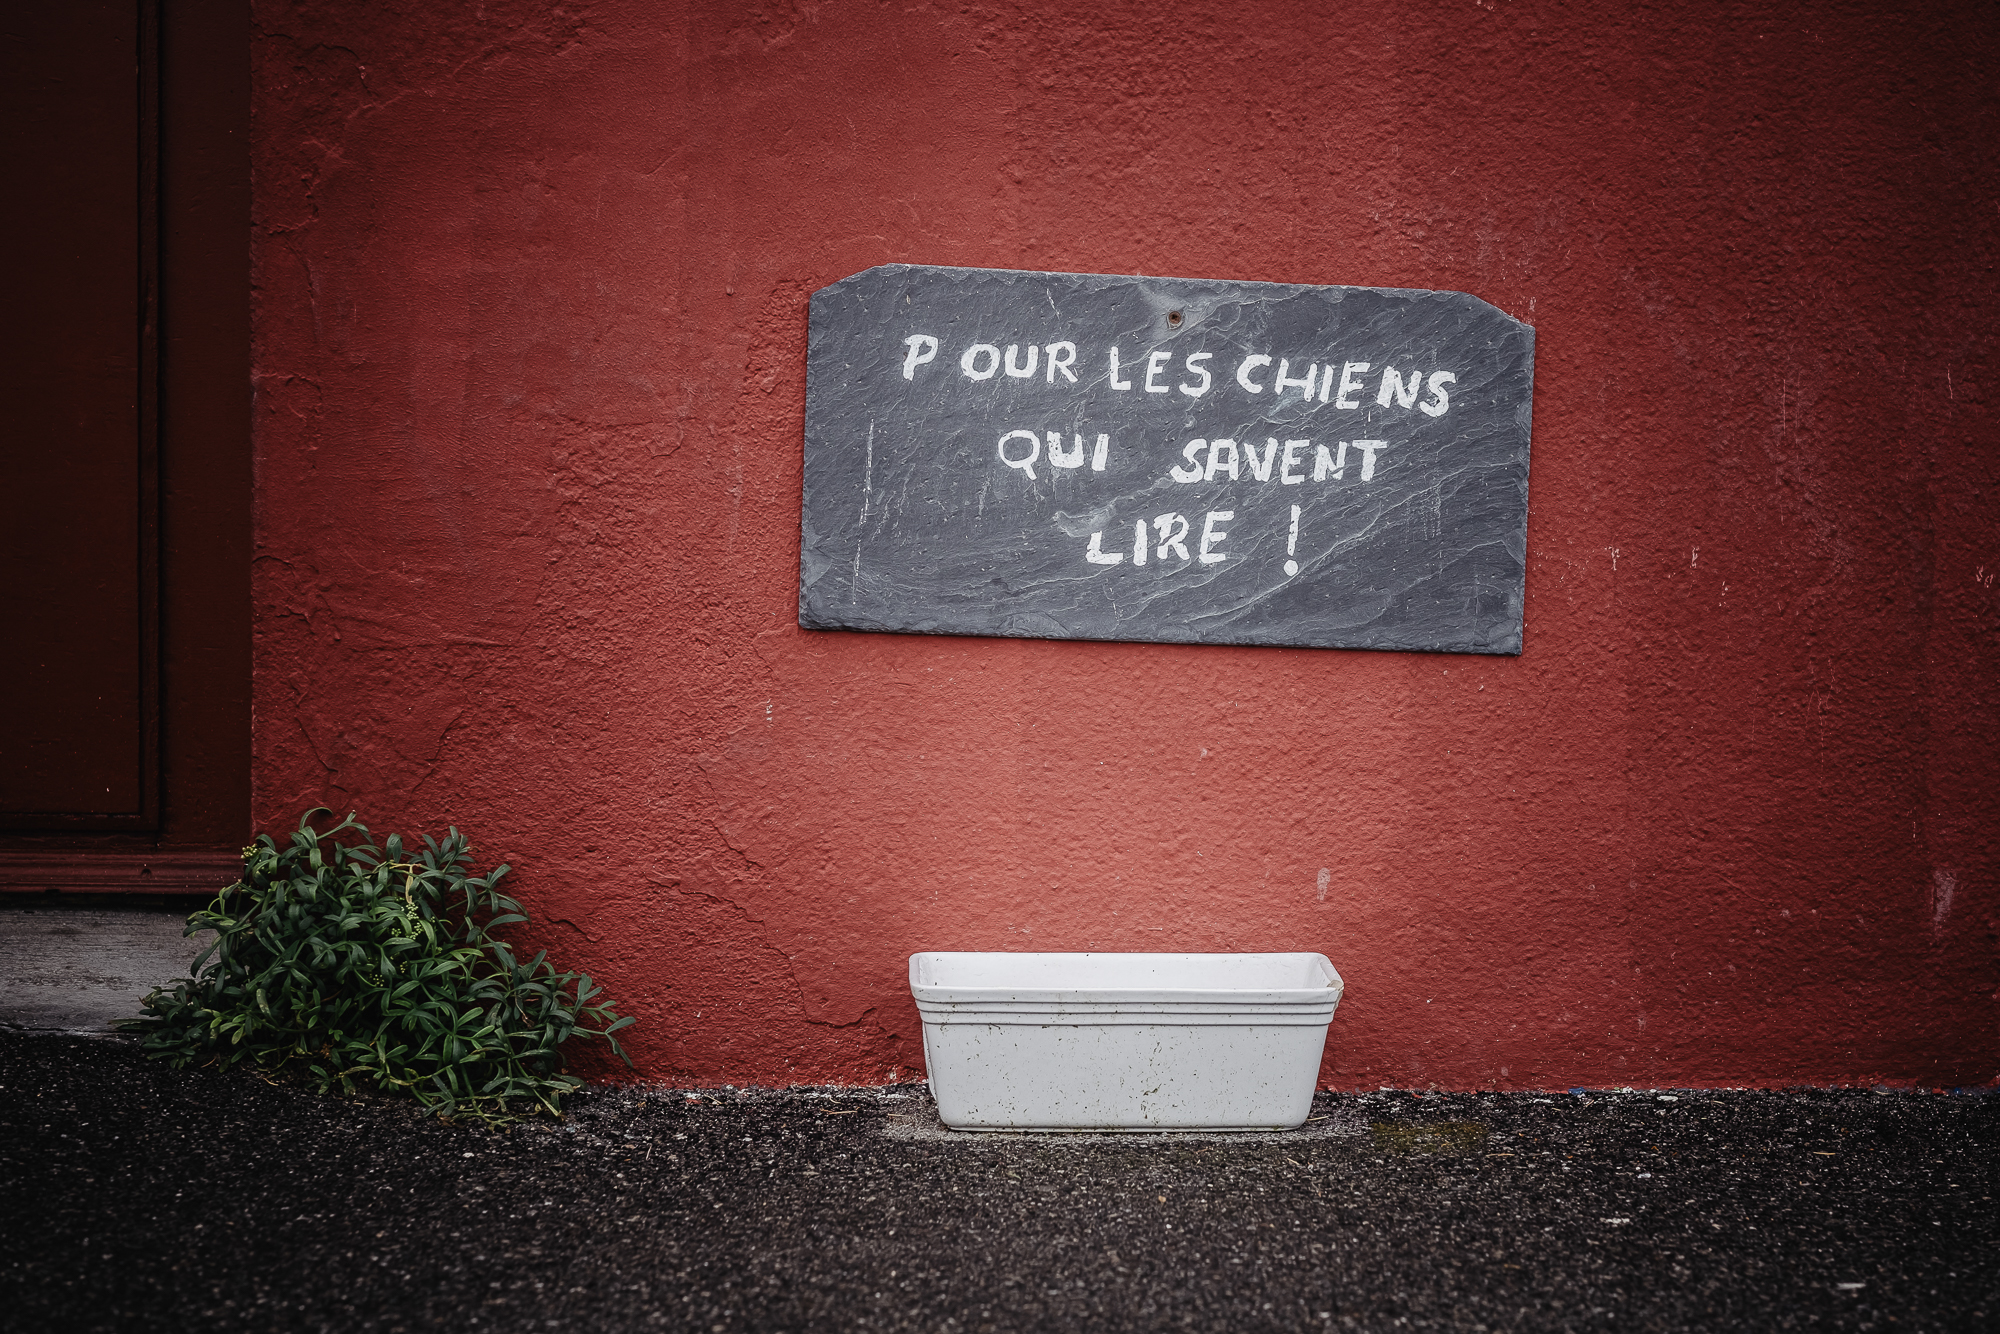 POUR LES CHIENS
QUI SAVENT
LIRE !